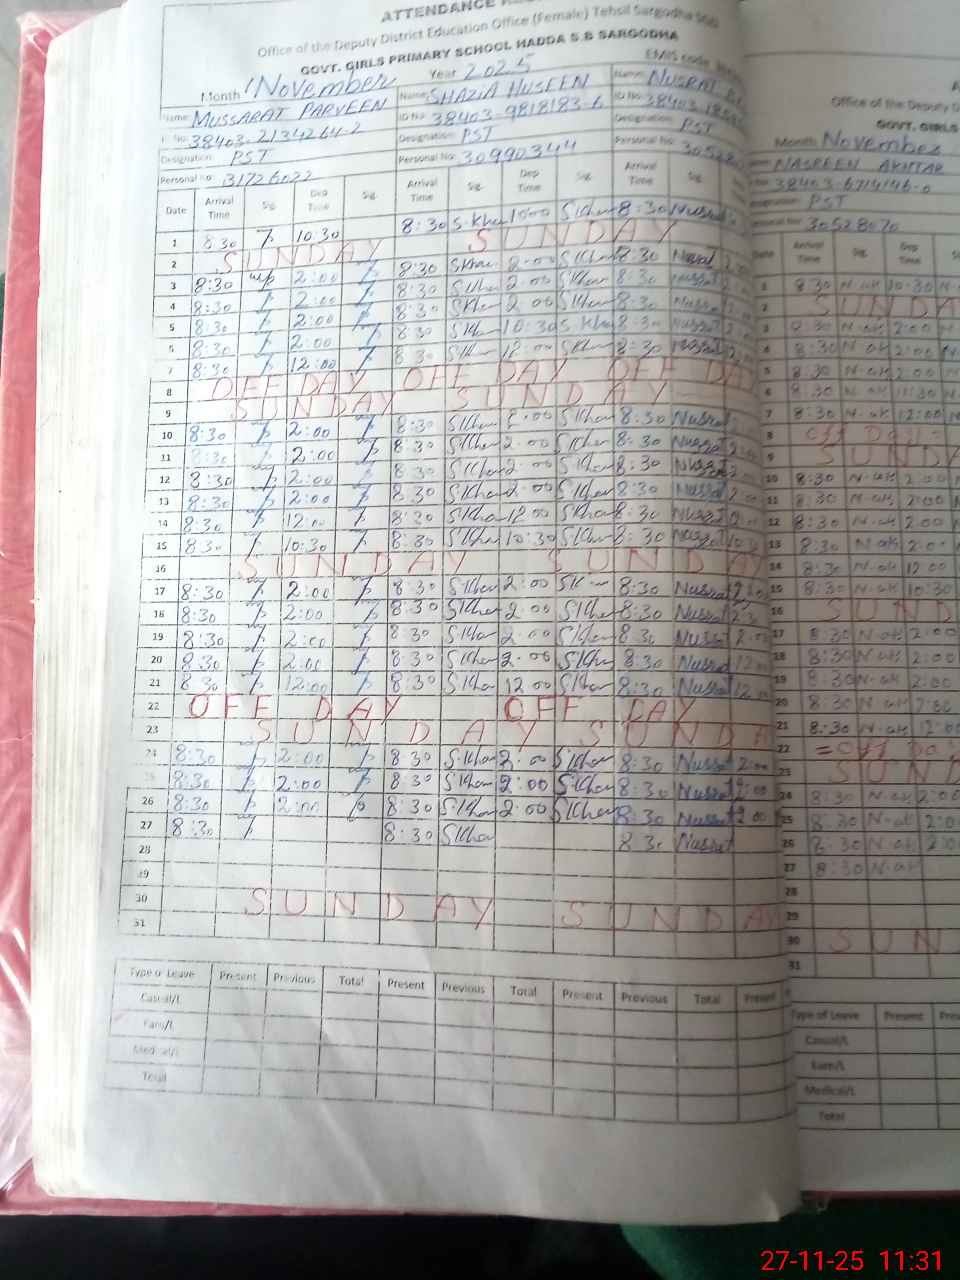 ATTENDANCE
Office of the Deputy District Education Office (Female) Tehsil Sargodha
GOVT. GIRLS PRIMARY SCHOOL HADDA S.B SARGODHA
EMIS code
Month November Year 2025
Name: MUSSARAT PARVEEN Name: SHAZIA HUSEEN Name: NUSRAT
38403-2134264-2 ID No: 38403-9818183-6 ID No: 38403
Designation: PST Designation: PST Designation: PST
Personal No: 31726022 Personal No: 30990344 Personal No: 30528
Date Arrival Time Sig. Dep Time Sig. Arrival Time Sig. Dep Time Sig. Arrival Time Sig.
1 8:30 10:30 8:30 S.Khan S.Khan 8:30 Nusrat
2 SUNDAY SUNDAY
3 8:30 2:00 8:30 S.Khan 2:00 S.Khan 8:30 Nusrat
4 8:30 2:00 8:30 S.Khan 2:00 S.Khan 8:30 Nusrat
5 8:30 2:00 8:30 S.Khan 2:00 S.Khan 8:30 Nusrat
8:30 2:00 8:30 S.Khan 10:30 S.Khan 8:30 Nusrat
7 8:30 12:00 8:30 S.Khan 12:00 S.Khan 8:30 Nusrat
8 OFF DAY OFF DAY OFF DA
9 SUNDAY SUNDAY
10 8:30 2:00 8:30 S.Khan 2:00 S.Khan 8:30 Nusrat
11 8:30 2:00 8:30 S.Khan 2:00 S.Khan 8:30 Nusrat 2:00
12 8:30 2:00 8:30 S.Khan 2:00 S.Khan 8:30 Nusrat
13 8:30 2:00 8:30 S.Khan 2:00 S.Khan 8:30 Nusrat 2:00
14 8:30 12:00 8:30 S.Khan 12:00 S.Khan 8:30 Nusrat
15 8:30 10:30 8:30 S.Khan 10:30 S.Khan 8:30 Nusrat 10:30
16 SUNDAY SUNDA
17 8:30 2:00 8:30 S.Khan 2:00 8:30 Nusrat
18 8:30 2:00 8:30 S.Khan 2:00 S.Khan 8:30 Nusrat
19 8:30 2:00 8:30 S.Khan 2:00 S.Khan 8:30 Nusrat 2:00
20 8:30 2:00 8:30 S.Khan 2:00 S.Khan 8:30 Nusrat
21 8:30 12:00 8:30 S.Khan 12:00 S.Khan 8:30 Nusrat 12:00
22 OFF DAY OFF DAY
23 SUNDAY SUNDA
24 8:30 2:00 8:30 S.Khan 2:00 S.Khan 8:30 Nusrat 2:00
8:30 2:00 8:30 S.Khan 2:00 S.Khan 8:30 Nusrat 2:00
26 8:30 2:00 8:30 S.Khan 2:00 S.Khan 8:30 Nusrat 2:00
27 8:30 8:30 S.Khan 8:30 Nusrat
28
29
30 SUNDAY SUNDAY
31
Type of Leave Present Previous Total Present Previous Total Present Previous Total Present
Casual/L
Earn/L
Medical/L
Total
Office of the Deputy D
GOVT. GIRLS
Month November
NASREEN AKHTAR
38403-6714146-0
PST
30528070
Date Arrival Time Sig. Dep Time
1 8:30 N.ak 10:30
2 SUND
3 8:30 N.ak 2:00
8:30 N.ak 2:00
5 8:30 N.ak 2:00
8:30 N.ak
7 8:30 N.ak 12:00
8 Off Day
9 SUNDA
10 8:30 N.ak 2:00
11 8:30 N.ak 2:00
12 8:30 N.ak 2:00
13 8:30 N.ak 2:00
14 8:30 N.ak 12:00
15 8:30 N.ak 10:30
16 SUND
17 8:30 N.ak 2:00
18 8:30 N.ak 2:00
19 8:30 N.ak 2:00
20 8:30 N.ak 2:00
21 8:30 N.ak 12:00
22 = Off Day
23 SUND
24 8:30 N.ak 2:00
25 8:30 N.ak 2:00
26 8:30 N.ak 2:00
27 8:30 N.ak
28
29
30 SUN
31
Type of Leave Present
Casual/L
Earn/L
Medical/L
Total
27-11-25 11:31